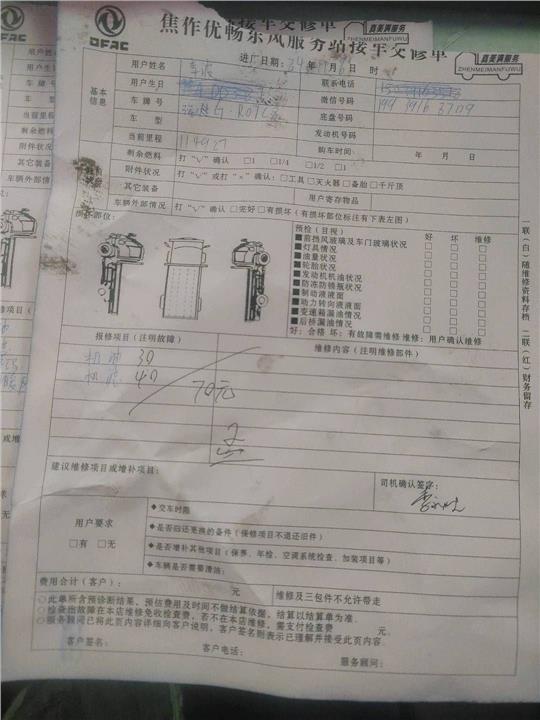 DFAC 焦作优畅东风服务站接车交修单 真美满服务
ZHENMEIMANFUWU
用户姓名 进厂日期: 年 月 日 时
用户生日 联系电话
基本信息
车牌号 微信号码 199 1916 3709
车型 底盘号
当前里程 114927 发动机号码
剩余燃料 打“√”确认 □1 □1/4 □1/2 □1 购车时间: 年 月 日
附件状况 打“√”或打“×”确认:□工具□灭火器□备胎□千斤顶
其它装备 用户寄存物品
车辆外部情况 打“√”确认□完好□有损坏(有损坏部位标注有下表左图)
损坏部位:
预检(目视) 好 坏 维修
■前挡风玻璃及车门玻璃状况 □ □ □
■灯具情况 □ □ □
■油量状况 □ □ □
■轮胎状况 □ □ □
■发动机机油状况 □ □ □
■防冻防锈瓶状况 □ □ □
■制动液液面 □ □ □
■动力转向液液面 □ □ □
■变速箱漏油情况 □ □ □
■后桥漏油情况 □ □ □
好:合格 坏:有故障需维修 维修:用户确认维修
报修项目(注明故障) 维修内容(注明维修部件)
机油 30
机滤 40
70元
建议维修项目或增补项目:
司机确认签字:
用户要求
□有 □无
◆交车时间
◆是否归还更换的备件(保修项目不退还旧件)
◆是否增补其他项目(保养、年检、空调系统检查、加装项目等)
◆车辆是否需要清洁:
费用合计(客户): 元 维修及三包件不允许带走
◇此单所含预诊断结果,预估费用及时间不做结算依据,结算以结算单为准.
◇检查出故障在本店维修免收检查费,若不在本店维修,需支付检查费 元.
◇服务顾问已将此页内容详细向客户说明,客户签名则表示已理解并接受此页内容.
客户签名: 客户电话: 服务顾问:
一联(白)随维修资料存档 二联(红)财务留存